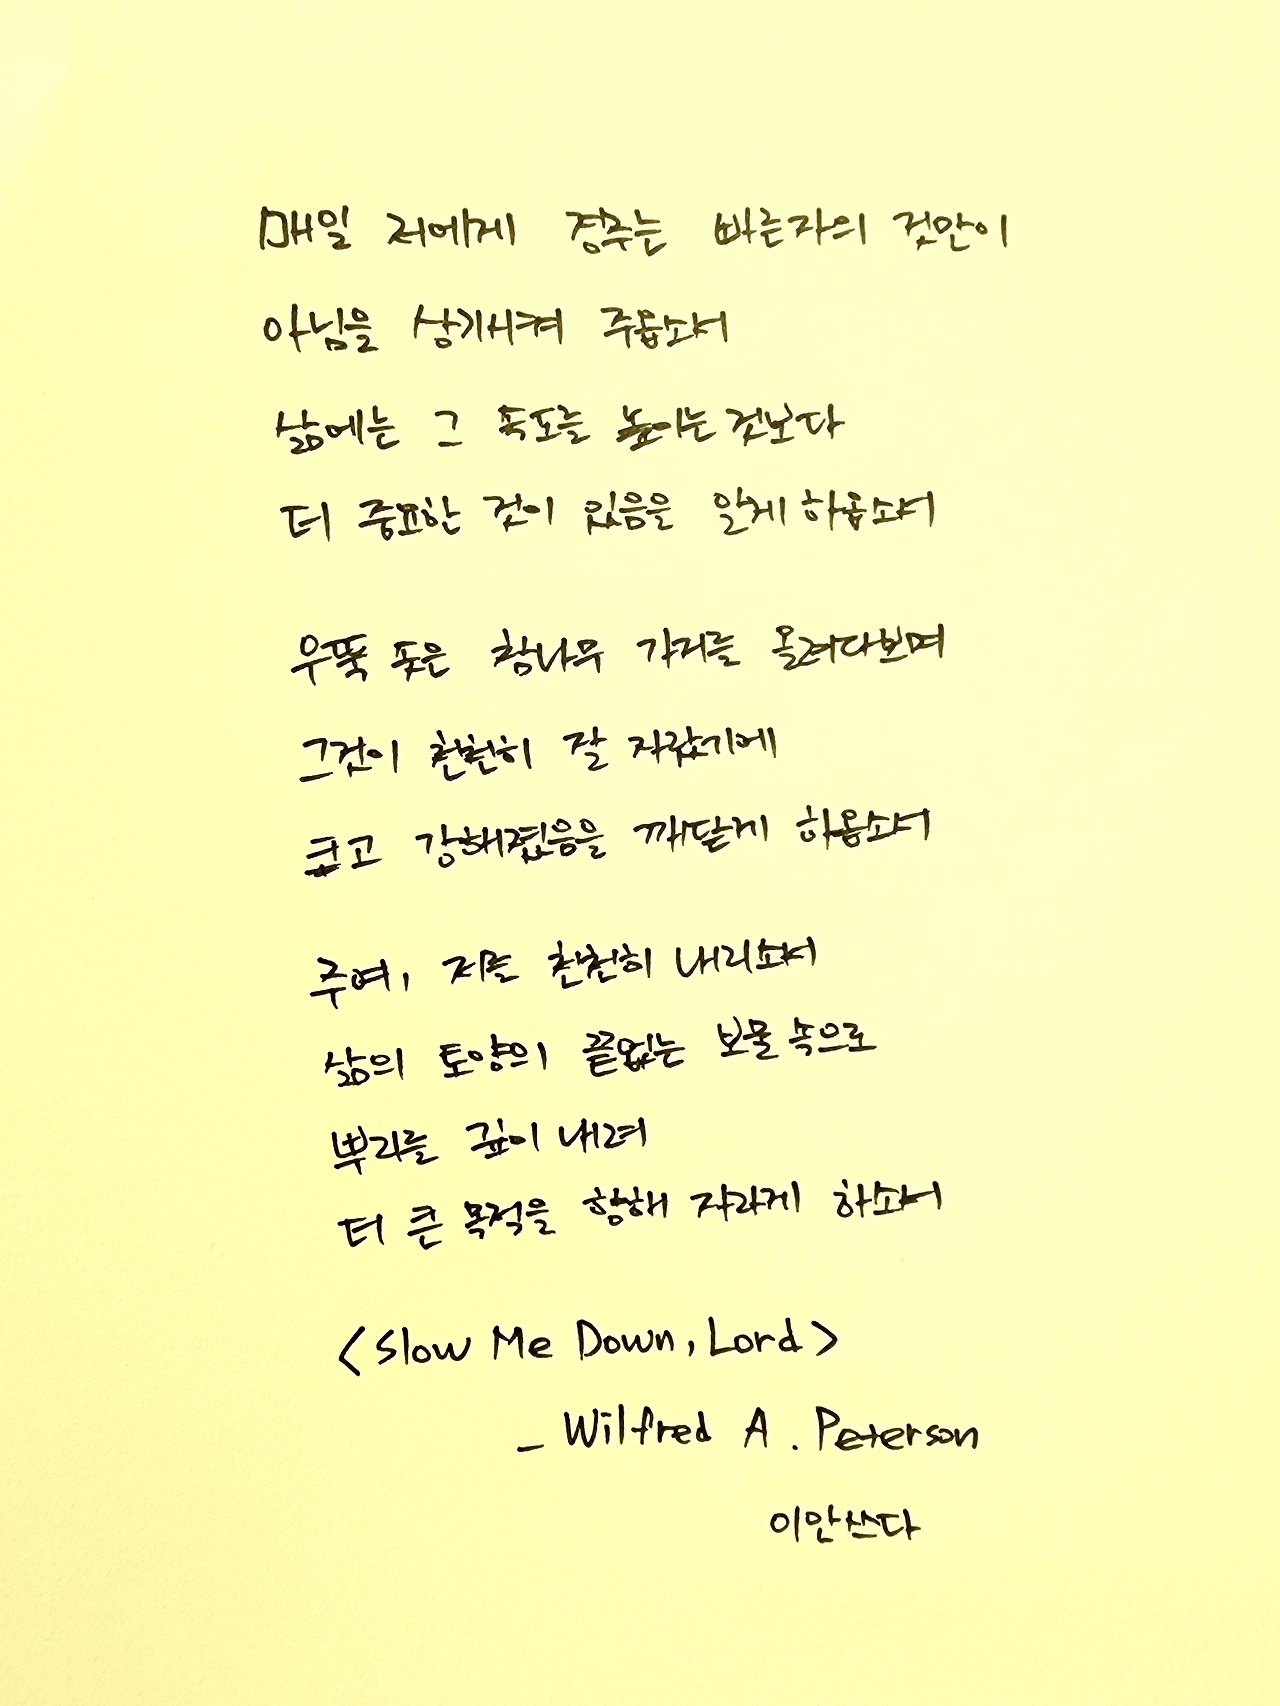 매일 저에게 경주는 빠른자의 것만이
아님을 상기시켜 주옵소서
삶에는 그 속도를 높이는 것보다
더 중요한 것이 있음을 알게 하옵소서
우뚝 솟은 참나무 가지를 올려다보며
그것이 천천히 잘 자랐기에
크고 강해졌음을 깨닫게 하옵소서
주여, 저를 천천히 내리소서
삶의 토양의 끝없는 보물 속으로
뿌리를 깊이 내려
더 큰 목적을 향해 자라게 하소서
<Slow Me Down, Lord>
- Wilfred A. Peterson
이안쓰다